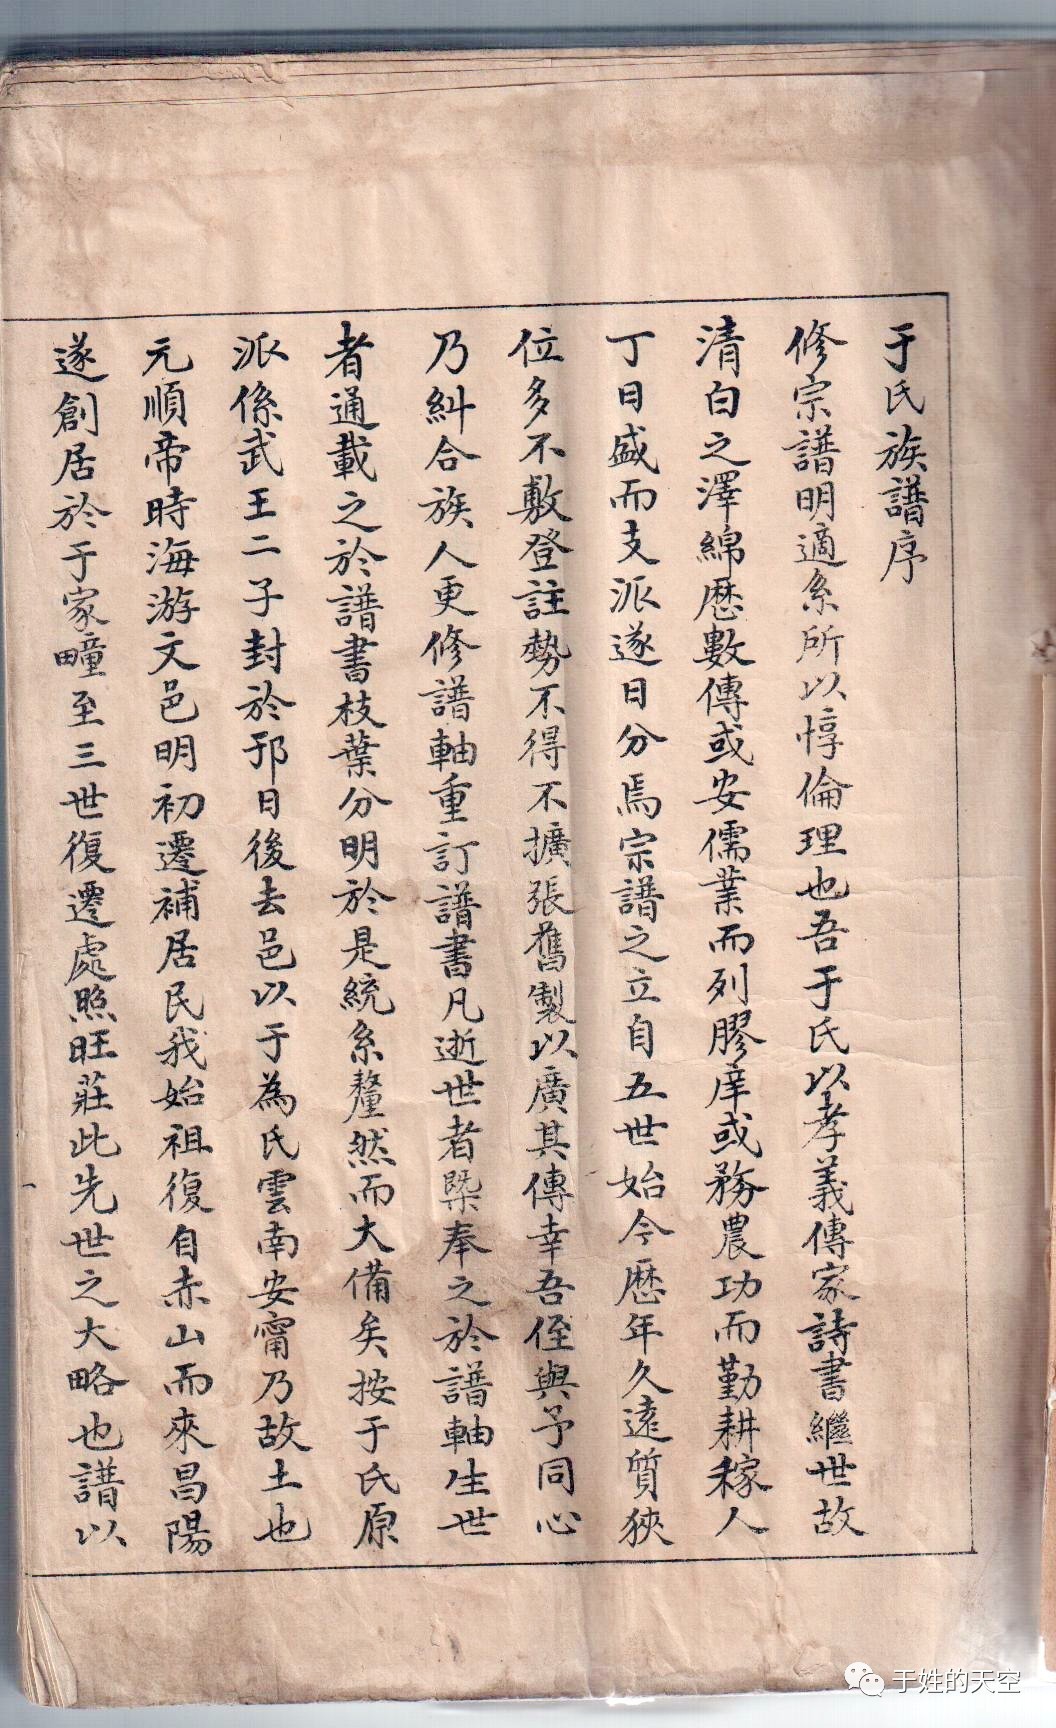 于氏族譜序
修宗譜明適系所以惇倫理也吾于氏以孝義傳家詩書繼世故
清白之澤綿歷數傳或安儒業而列膠庠或務農功而勤耕稼人
丁日盛而支派遂日分焉宗譜之立自五世始今歷年久遠質狹
位多不敷登註勢不得不擴張舊製以廣其傳幸吾侄與予同心
乃糾合族人更修譜軸重訂譜書凡逝世者槩奉之於譜軸生世
者通載之於譜書枝葉分明於是統系釐然而大備矣按于氏原
派係武王二子封於邘日後去邑以于為氏雲南安甯乃故土也
元順帝時海游文邑明初遷補居民我始祖復自赤山而來昌陽
遂創居於于家疃至三世復遷處照旺莊此先世之大略也譜以
于姓的天空